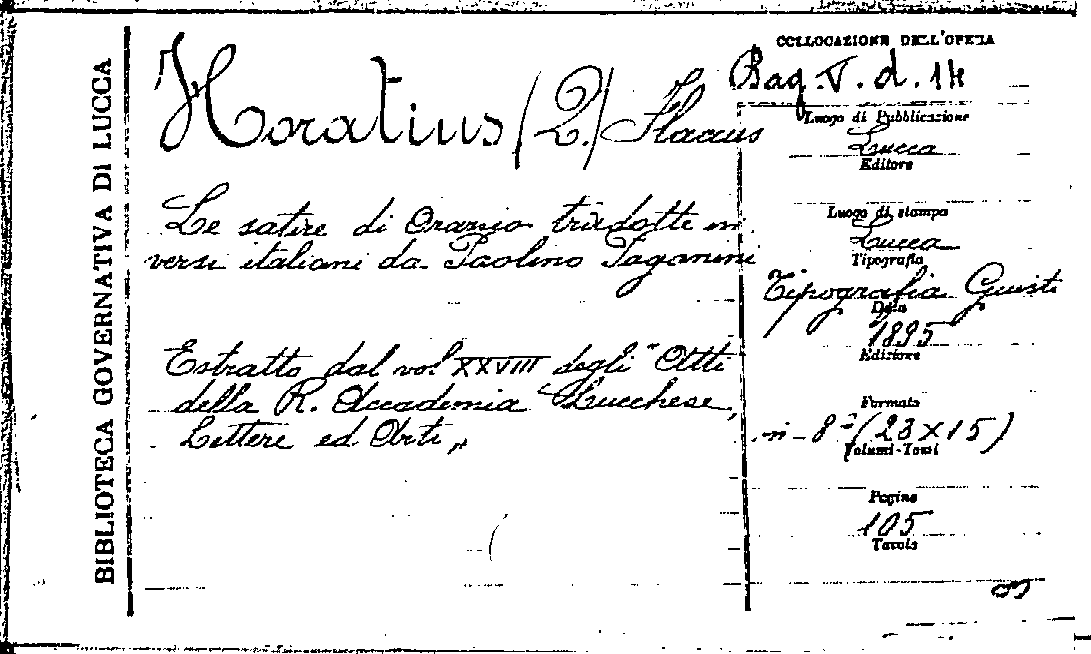 BIBLIOTECA GOVERNATIVA DI LUCCA
Horatius (Q.) Flaccus
Le satire di Orazio tradotte in
versi italiani da Paolino Paganini
Estratto dal vol XXVIII degli "Atti
della R. Accademia Lucchese,
Lettere ed Arti„
COLLOCAZIONE DELL'OPERA
Bag. V. d. 14
Luogo di Pubblicazione
Lucca
Editore
Luogo di stampa
Lucca
Tipografia
Tipografia Giusti
Data
1895
Edizione
Formato
in-8° (23×15)
Volumi-Tomi
Pagine
105
Tavole